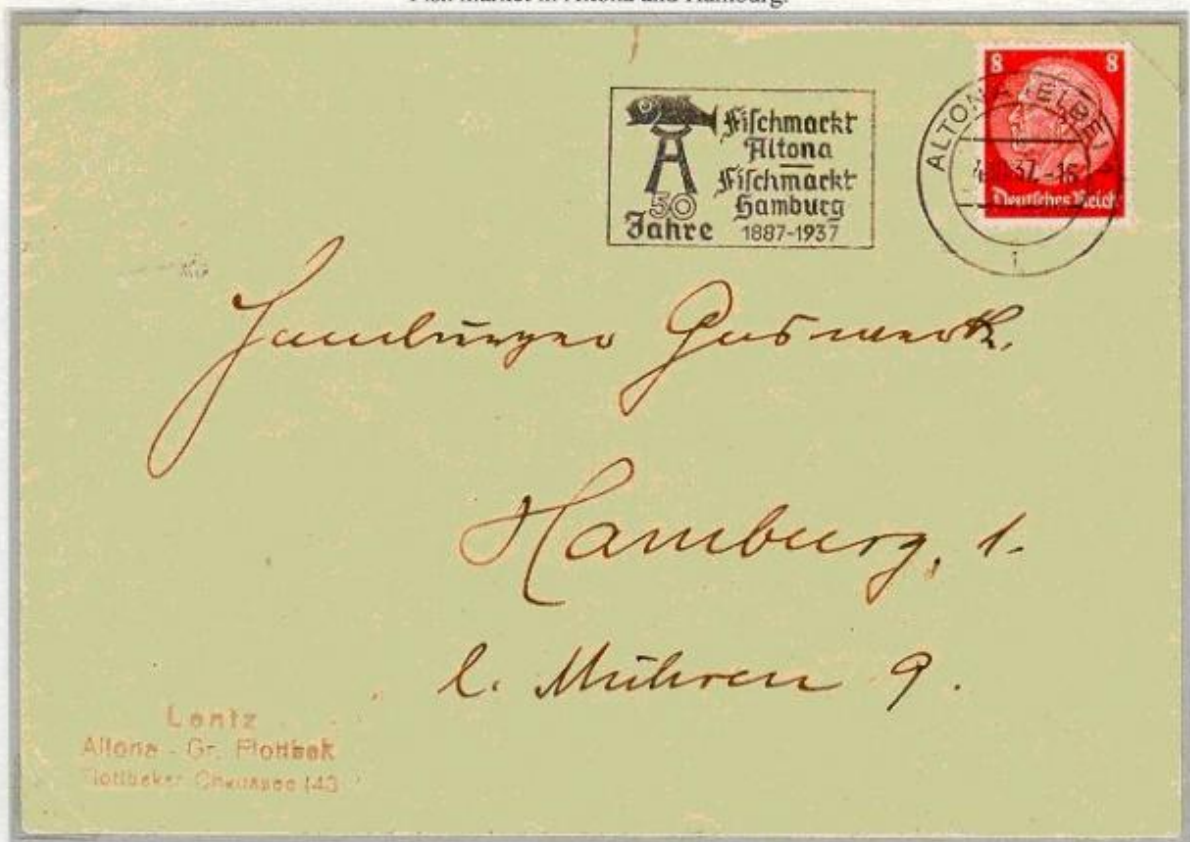 Fish market in Altona and Hamburg.
Fischmarkt
Altona
Fischmarkt
Hamburg
50
Jahre 1887-1937
8 8
ALTONA (ELBE)
37.-16
Deutsches Reich
Hamburger Gaswerk.
Hamburg, 1.
b. Mühren 9.
Lentz
Altona - Gr. Flottbek
Flottbeker Chaussee 143